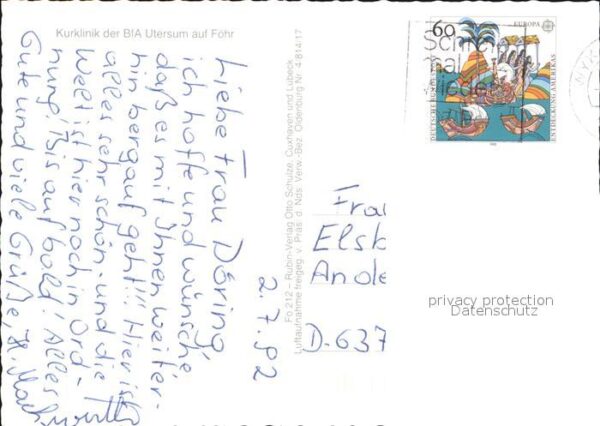 Kurklinik der BfA Utersum auf Föhr
2.7.92
Liebe Frau Döring,
ich hoffe und wünsche
daß es mit Ihnen weiter-
hin bergauf geht!!! Hier ist
alles sehr schön - und die
Welt ist hier noch in Ord-
nung! Bis auf bald! Alles
Gute und viele Grüße,
Fö 212 – Rubin-Verlag Otto Schulze, Cuxhaven und Lübeck
Luftaufnahme freigeg. v. Präs. d. Nds. Verw.-Bez. Oldenburg Nr. 4814/17
60
EUROPA
DEUTSCHE BUNDESPOST
ENTDECKUNG AMERIKAS
Frau
Elsb
Ande
D-637
privacy protection
Datenschutz